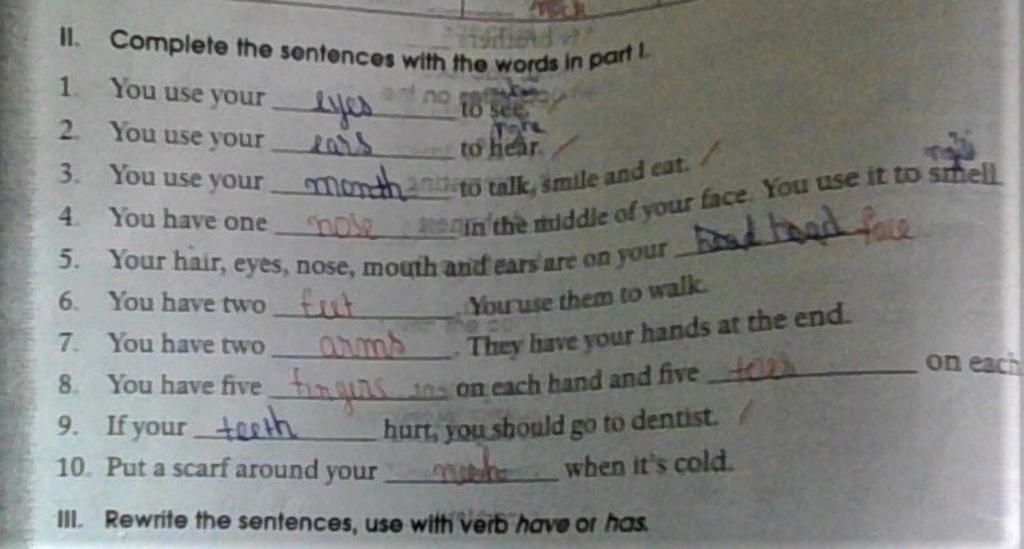 II. Complete the sentences with the words in part I.
1. You use your eyes to see.
2. You use your ears to hear.
3. You use your month to talk, smile and eat.
4. You have one nose in the middle of your face. You use it to smell
5. Your hair, eyes, nose, mouth and ears are on your head face
6. You have two feet . You use them to walk.
7. You have two arms . They have your hands at the end.
8. You have five fingers on each hand and five toes on each
9. If your teeth hurt, you should go to dentist.
10. Put a scarf around your when it's cold.
III. Rewrite the sentences, use with verb have or has.